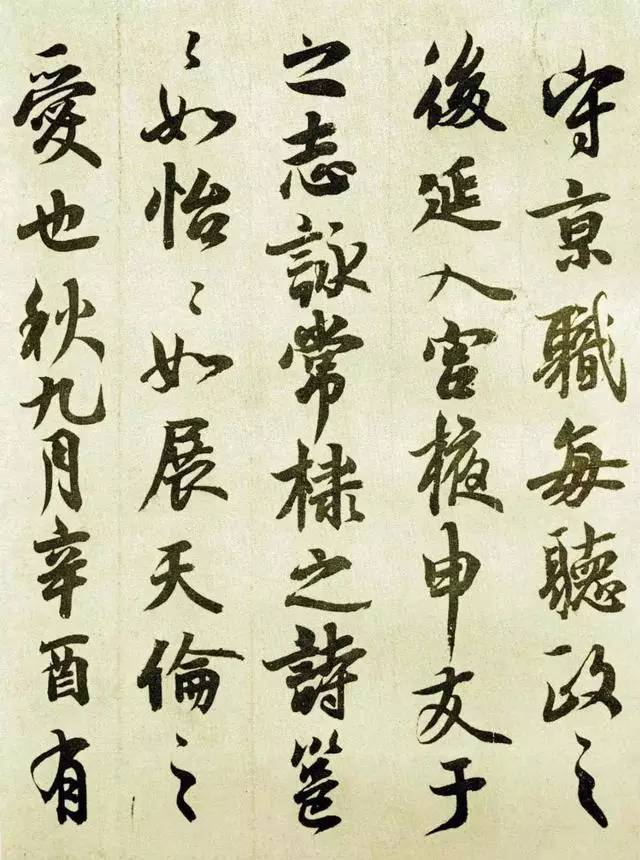 守京職每聽政之
後延入宮掖申友于
之志詠常棣之詩邕
〻如怡〻如展天倫之
愛也秋九月辛酉有